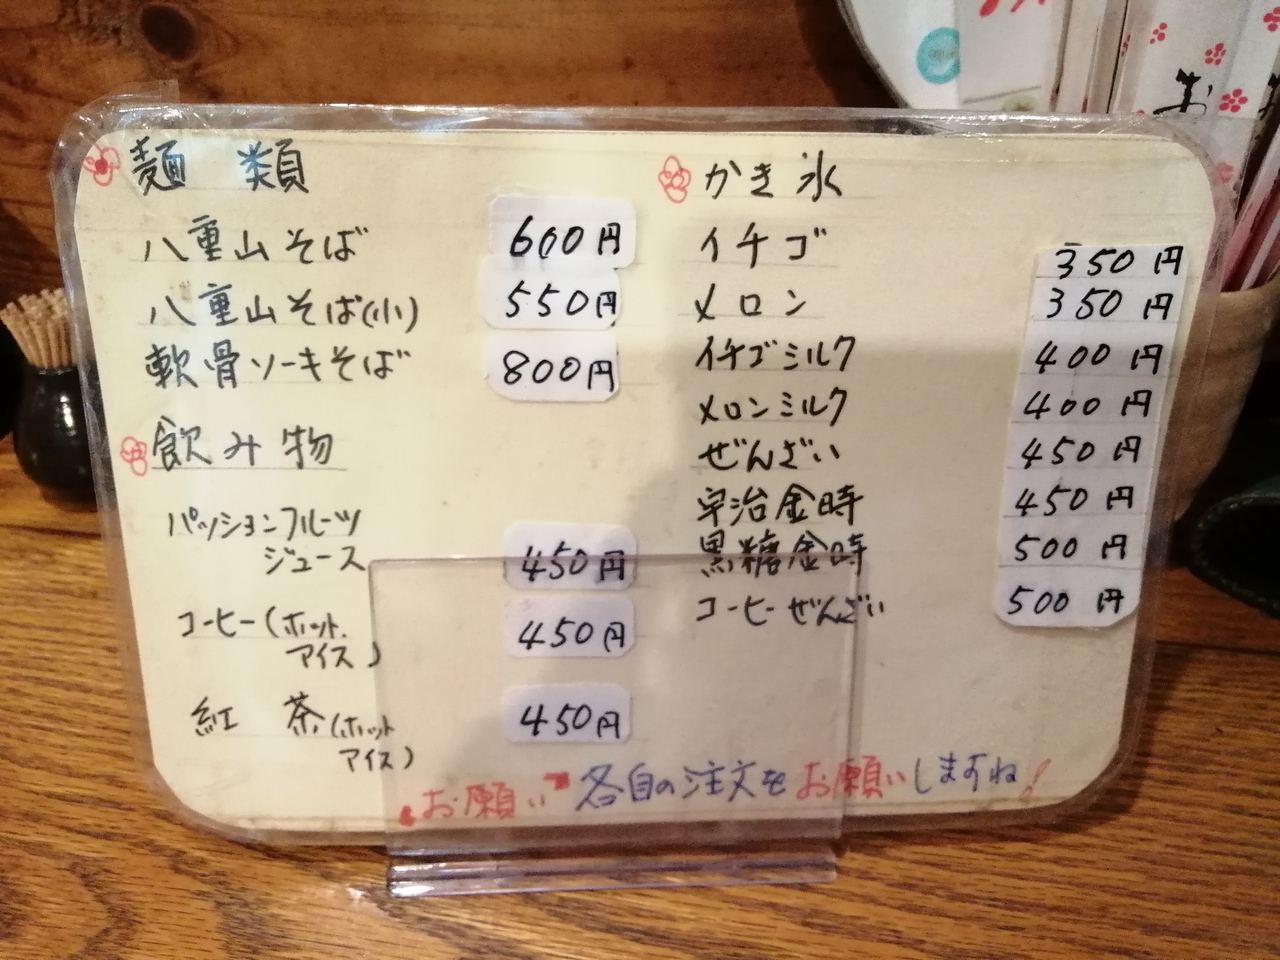 麺 類
八重山そば 600円
八重山そば(小) 550円
軟骨ソーキそば 800円
飲み物
パッションフルーツ
ジュース 450円
コーヒー(ホット
アイス) 450円
紅 茶(ホット
アイス) 450円
かき氷
イチゴ 350円
メロン 350円
イチゴミルク 400円
メロンミルク 400円
ぜんざい 450円
宇治金時 450円
黒糖金時 500円
コーヒーぜんざい 500円
"お願い" 各自の注文をお願いしますね!
お